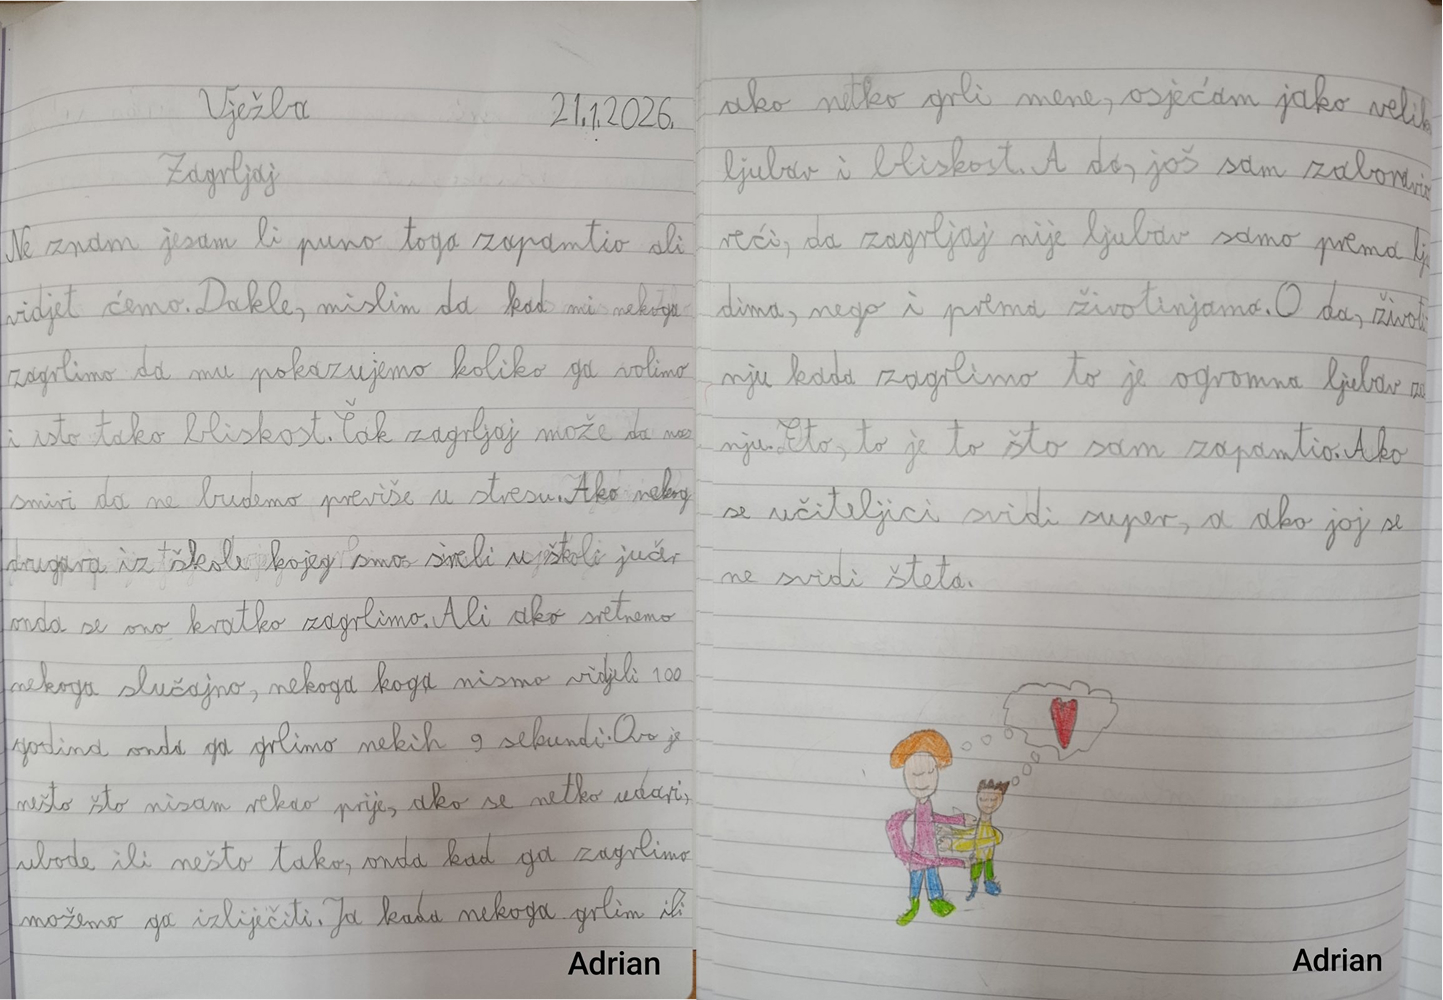 Vježba 21.1.2026.
Zagrljaj
Ne znam jesam li puno toga zapamtio ali
vidjet ćemo. Dakle, mislim da kad mi nekoga
zagrlimo da mu pokazujemo koliko ga volimo
i isto tako bliskost. Čak zagrljaj može da nas
smiri da ne budemo previše u stresu. Ako nekog
drugara iz škole kojeg smo sreli u školi jučer
onda se ono kratko zagrlimo. Ali ako sretnemo
nekoga slučajno, nekoga koga nismo vidjeli 100
godina onda ga grlimo nekih 9 sekundi. Ovo je
nešto što nisam rekao prije, ako se netko udari,
ubode ili nešto tako, onda kad ga zagrlimo
možemo ga izliječiti. Ja kada nekoga grlim ili
Adrian
ako netko grli mene, osjećam jako velik
ljubav i bliskost. A da, još sam zaboravio
reći, da zagrljaj nije ljubav samo prema lju
dima, nego i prema životinjama. O da, životi
nju kada zagrlimo to je ogromna ljubav za
nju. Eto, to je to što sam zapamtio. Ako
se učiteljici svidi super, a ako joj se
ne svidi šteta.
Adrian